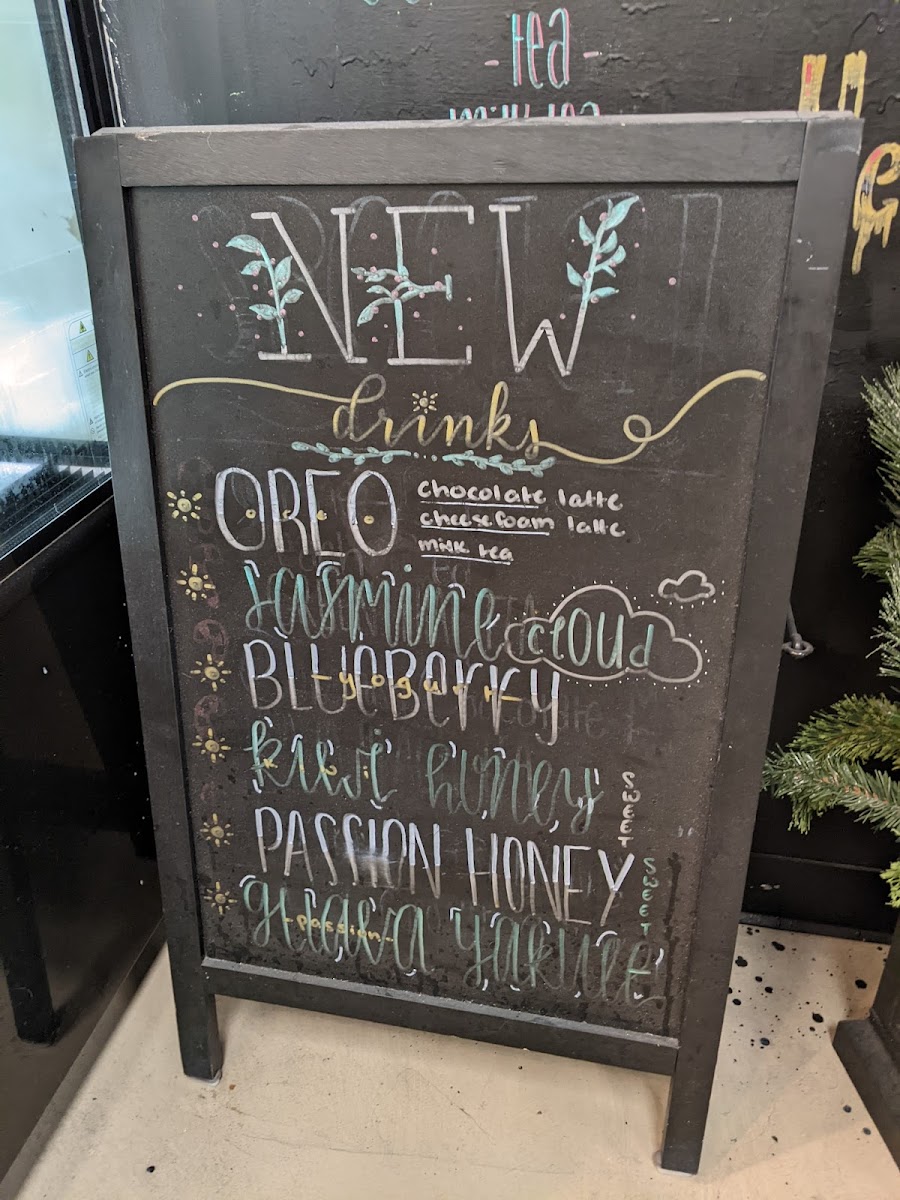 - tea -
milk tea
NEW
drinks
OREO
chocolate latte
cheesefoam latte
milk tea
Jasmine cloud
BLUEBERRY
- yogurt -
kiwi honey
SWEET
PASSION HONEY
SWEET
guava yakult
- passion -